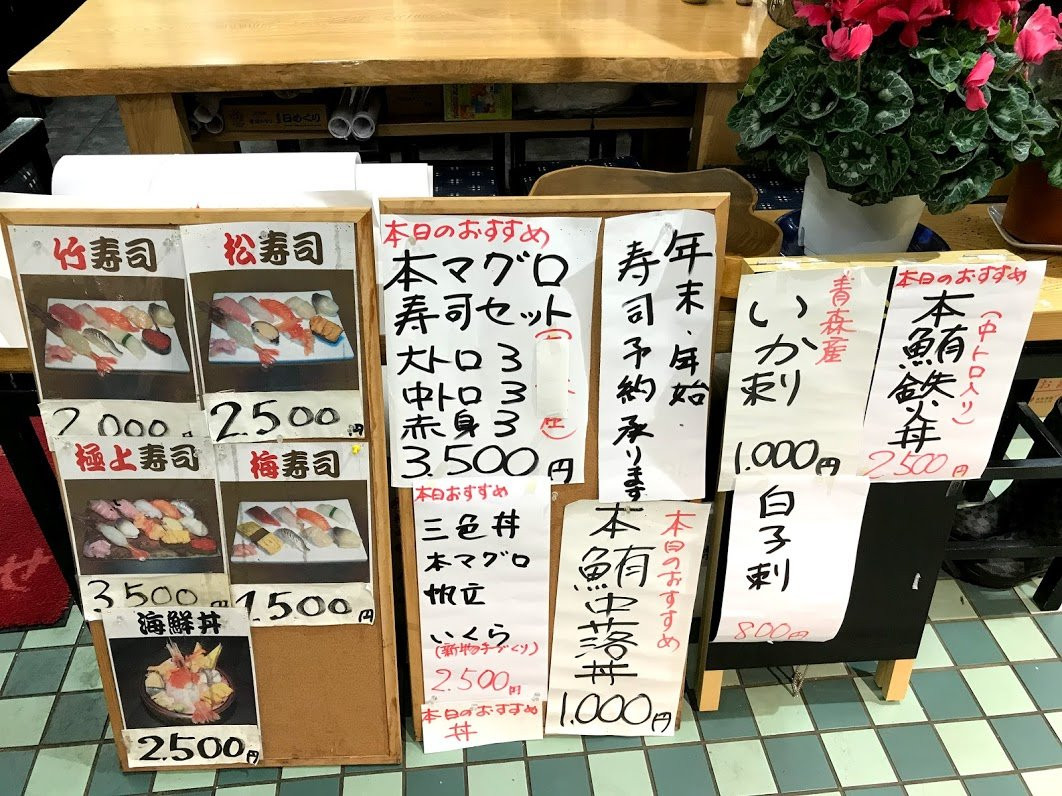 竹寿司
2,000円
松寿司
2,500円
極上寿司
3,500円
梅寿司
1,500円
海鮮丼
2,500円
本日のおすすめ
本マグロ
寿司セット
大トロ3
中トロ3
赤身3
3,500円
年末・年始
寿司予約承ります
本日おすすめ
三色丼
本マグロ
帆立
いくら
(新物手づくり)
2,500円
本日のおすすめ
丼
本日のおすすめ
本鮪中落丼
1,000円
青森産
いか刺
1,000円
白子刺
800円
本日のおすすめ
本鮪鉄火丼
(中トロ入り)
2,500円
日めくり
せ